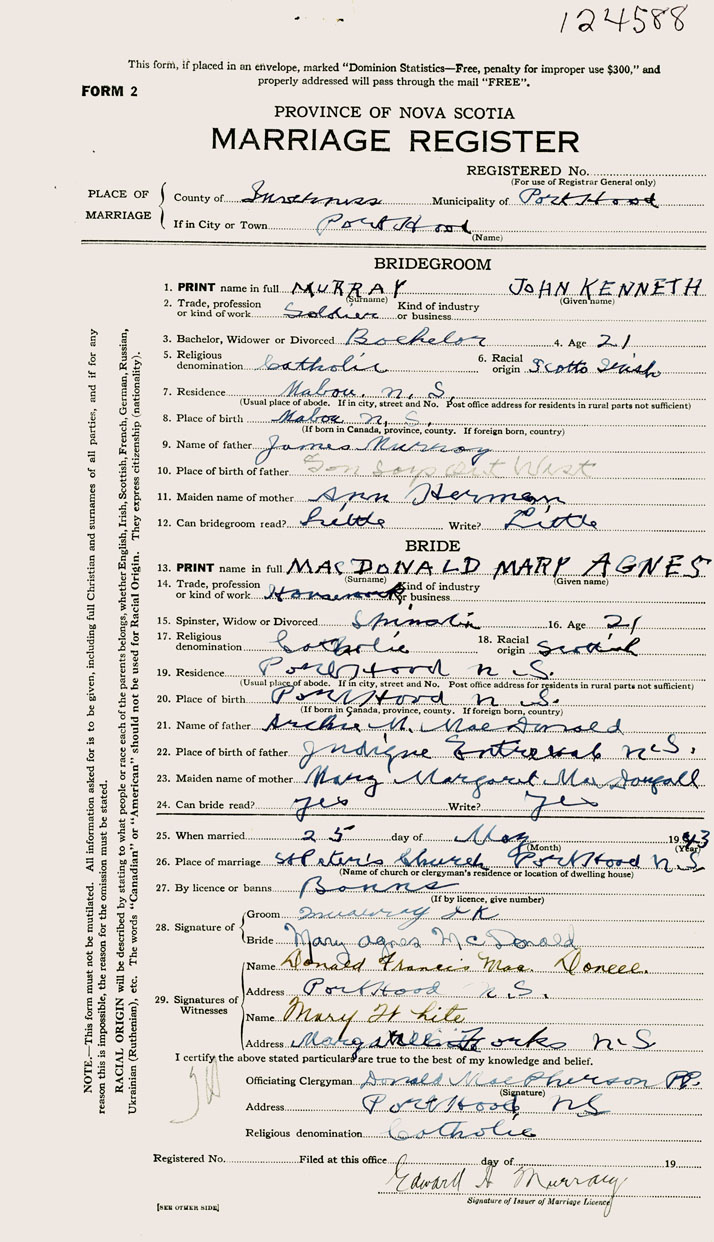 124588
This form, if placed in an envelope, marked “Dominion Statistics—Free, penalty for improper use $300,” and
properly addressed will pass through the mail “FREE”.
FORM 2
PROVINCE OF NOVA SCOTIA
MARRIAGE REGISTER
REGISTERED No.
(For use of Registrar General only)
PLACE OF MARRIAGE
County of Inverness Municipality of Port Hood
If in City or Town Port Hood
(Name)
BRIDEGROOM
1. PRINT name in full MURRAY JOHN KENNETH
(Surname) (Given name)
2. Trade, profession or kind of work Soldier Kind of industry or business
3. Bachelor, Widower or Divorced Bachelor 4. Age 21
5. Religious denomination Catholic 6. Racial origin Scotto Irish
7. Residence Mabou, N. S.
(Usual place of abode. If in city, street and No. Post office address for residents in rural parts not sufficient)
8. Place of birth Mabou N. S.
(If born in Canada, province, county. If foreign born, country)
9. Name of father James Murray
10. Place of birth of father West
11. Maiden name of mother Ann Herman
12. Can bridegroom read? Little Write? Little
BRIDE
13. PRINT name in full MACDONALD MARY AGNES
(Surname) (Given name)
14. Trade, profession or kind of work Housework Kind of industry or business
15. Spinster, Widow or Divorced Spinster 16. Age 21
17. Religious denomination Catholic 18. Racial origin Scottish
19. Residence Port Hood N S.
(Usual place of abode. If in city, street and No. Post office address for residents in rural parts not sufficient)
20. Place of birth Port Hood N S.
(If born in Canada, province, county. If foreign born, country)
21. Name of father Archie M. MacDonald
22. Place of birth of father N.S.
23. Maiden name of mother Mary Margaret MacDougall
24. Can bride read? Yes Write? Yes
25. When married 25 day of May 1943
(Month) (Year)
26. Place of marriage St Peter's Church Port Hood N S
(Name of church or clergyman's residence or location of dwelling house)
27. By licence or banns Banns
(If by licence, give number)
28. Signature of
Groom Murray J K
Bride Mary Agnes McDonald
29. Signatures of Witnesses
Name Donald Francis Mac Donell.
Address Port Hood N.S.
Name Mary White
Address Forks N-S
I certify the above stated particulars are true to the best of my knowledge and belief.
Officiating Clergyman Donald MacPherson P.P.
(Signature)
Address Port Hood NS
Religious denomination Catholic
Registered No. Filed at this office day of 19
Edward H Murray
Signature of Issuer of Marriage Licence
[SEE OTHER SIDE]
NOTE.—This form must not be mutilated. All information asked for is to be given, including full Christian and surnames of all parties, and if for any
reason this is impossible, the reason for the omission must be stated.
RACIAL ORIGIN will be described by stating to what people or race each of the parents belongs, whether English, Irish, Scottish, French, German, Russian,
Ukrainian (Ruthenian), etc. The words “Canadian” or “American” should not be used for Racial Origin. They express citizenship (nationality).